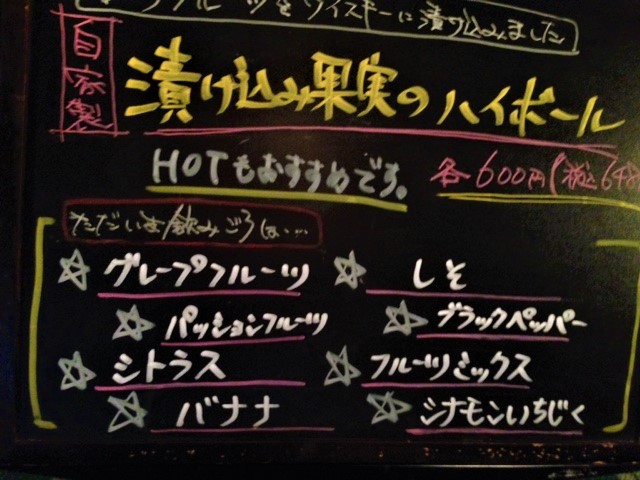 フルーツをウイスキーに漬け込みました
自家製
漬け込み果実のハイボール
HOTもおすすめです。
各600円(税込648
ただいま飲みごろは…
☆グレープフルーツ ☆しそ
☆パッションフルーツ ☆ブラックペッパー
☆シトラス ☆フルーツミックス
☆バナナ ☆シナモンいちじく